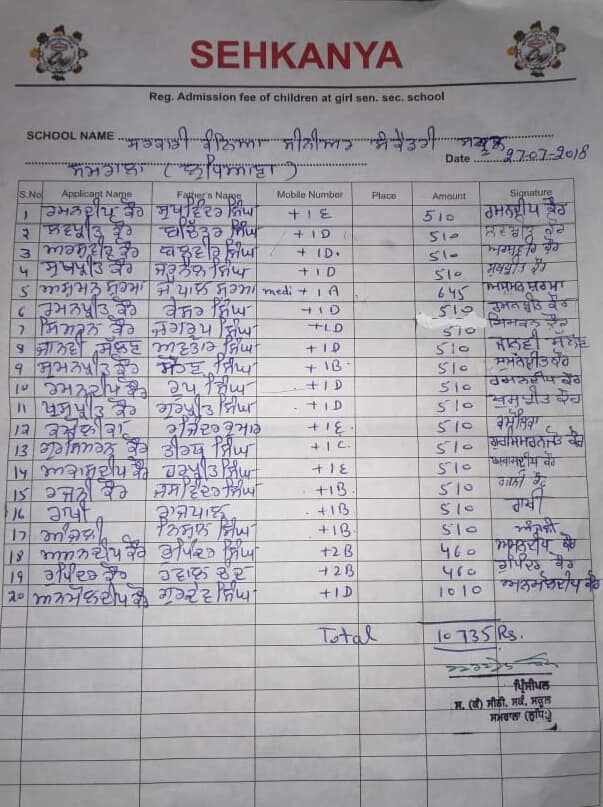 SEHKANYA
Reg. Admission fee of children at girl sen. sec. school
SCHOOL NAME ਸਰਕਾਰੀ ਕੰਨਿਆ ਸੀਨੀਅਰ ਸੈਕੰਡਰੀ ਸਕੂਲ
ਸਮਰਾਲਾ (ਲੁਧਿਆਣਾ) Date 27-07-2018
S.No Applicant Name Father's Name Mobile Number Place Amount Signature
1 ਰਮਨਦੀਪ ਕੌਰ ਸੁਖਵਿੰਦਰ ਸਿੰਘ +1 E 510 ਰਮਨਦੀਪ ਕੌਰ
2 ਲਵਪ੍ਰੀਤ ਕੌਰ ਬਚਿੱਤਰ ਸਿੰਘ +1D 510 ਲਵਪ੍ਰੀਤ ਕੌਰ
3 ਅਰਸ਼ਵੀਰ ਕੌਰ ਬਲਵੀਰ ਸਿੰਘ +1D. 510 ਅਰਸ਼ਵੀਰ ਕੌਰ
4 ਸੁਖਪ੍ਰੀਤ ਕੌਰ ਜਰਨੈਲ ਸਿੰਘ +1D 510 ਸੁਖਪ੍ਰੀਤ ਕੌਰ
5 ਸ਼ਰਮਾ ਜੈ ਪਾਲ ਸ਼ਰਮਾ medi +1A 645 ਸ਼ਰਮਾ
6 ਰਮਨਪ੍ਰੀਤ ਕੌਰ ਕੇਸਰ ਸਿੰਘ +1D 510 ਰਮਨਪ੍ਰੀਤ ਕੌਰ
7 ਸਿਮਰਨ ਕੌਰ ਜਗਰੂਪ ਸਿੰਘ +1D 510 ਸਿਮਰਨ ਕੌਰ
8 ਜਾਨਵੀ ਅਵਤਾਰ ਸਿੰਘ +1D 510 ਜਾਨਵੀ
9 ਸੁਮਨਪ੍ਰੀਤ ਕੌਰ ਸੋਹਣ ਸਿੰਘ +1B. 510 ਸੁਮਨਪ੍ਰੀਤ ਕੌਰ
10 ਰਮਨਦੀਪ ਕੌਰ ਰੂਪ ਸਿੰਘ +1D 510 ਰਮਨਦੀਪ ਕੌਰ
11 ਖੁਸ਼ਪ੍ਰੀਤ ਕੌਰ ਗੁਰਪ੍ਰੀਤ ਸਿੰਘ +1D 510 ਖੁਸ਼ਪ੍ਰੀਤ ਕੌਰ
12 ਰਜਿੰਦਰ ਕੁਮਾਰ +1E. 510
13 ਗੁਰਸਿਮਰਨ ਕੌਰ ਤੀਰਥ ਸਿੰਘ +1C. 510 ਗੁਰਸਿਮਰਨਜੋਤ ਕੌਰ
14 ਅਕਾਸ਼ਦੀਪ ਕੌਰ ਹਰਪ੍ਰੀਤ ਸਿੰਘ +1E 510 ਅਕਾਸ਼ਦੀਪ ਕੌਰ
15 ਰਜਨੀ ਕੌਰ ਜਸਵਿੰਦਰ ਸਿੰਘ +1B. 510 ਕੌਰ
16 ਰਾਖੀ ਰਾਜਪਾਲ +1B. 510 ਰਾਖੀ
17 ਅੰਜਲੀ ਸਿੰਘ +1B. 510 ਅੰਜਲੀ
18 ਅਮਨਦੀਪ ਕੌਰ ਰੁਪਿੰਦਰ ਸਿੰਘ +2B 460 ਅਮਨਦੀਪ ਕੌਰ
19 ਰੁਪਿੰਦਰ ਕੌਰ ਚੰਦ +2B 460 ਰੁਪਿੰਦਰ ਕੌਰ
20 ਅਨਮੋਲਦੀਪ ਕੌਰ ਗੁਰਦੇਵ ਸਿੰਘ +1D 1010 ਅਨਮੋਲਦੀਪ ਕੌਰ
Total 10735 Rs.
ਪ੍ਰਿੰਸੀਪਲ
ਸ. (ਕੰ) ਸੀਨੀ. ਸਕੈਂ. ਸਕੂਲ
ਸਮਰਾਲਾ (ਲੁਧਿ:)